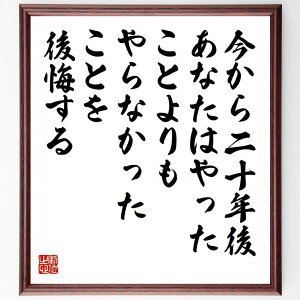 今から二十年後
あなたはやった
ことよりも
やらなかった
ことを
後悔する